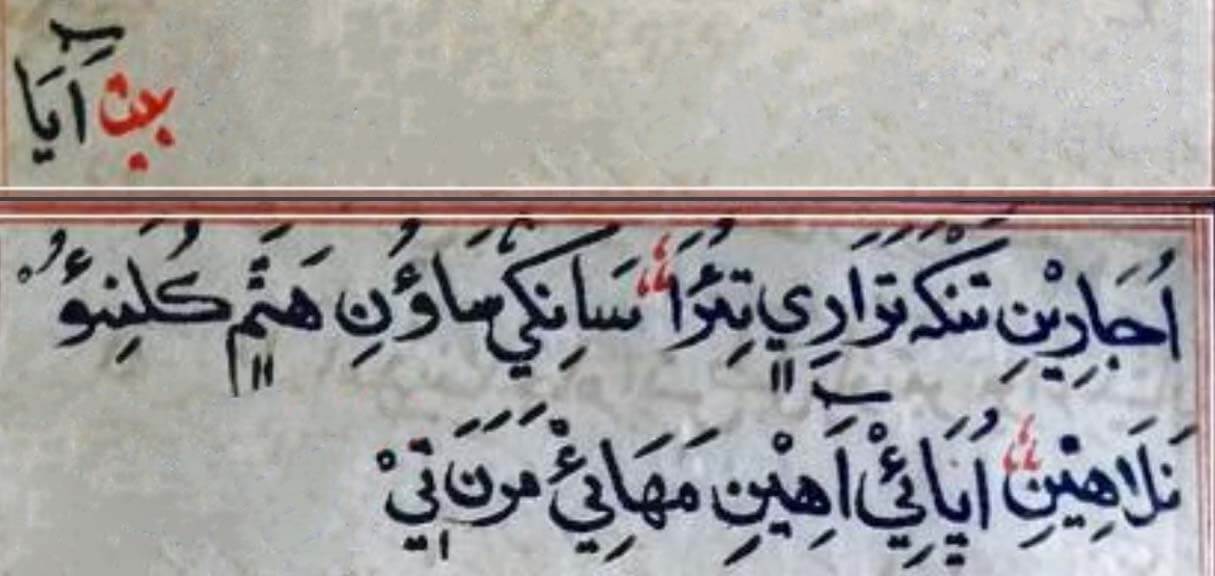 بيت آيَا
اُجَارِيْنِ تَنْكَهْ تَوَارِي تِئَرَا ؛؛ سَانِكِي سَاوُنِ هَٿَمِ كُلَنِئو
نَلَاهِيْنِ ؛؛ اُپَائِيْ آهِيْنِ مَهَائِيْ مَرَنَ تِيْ